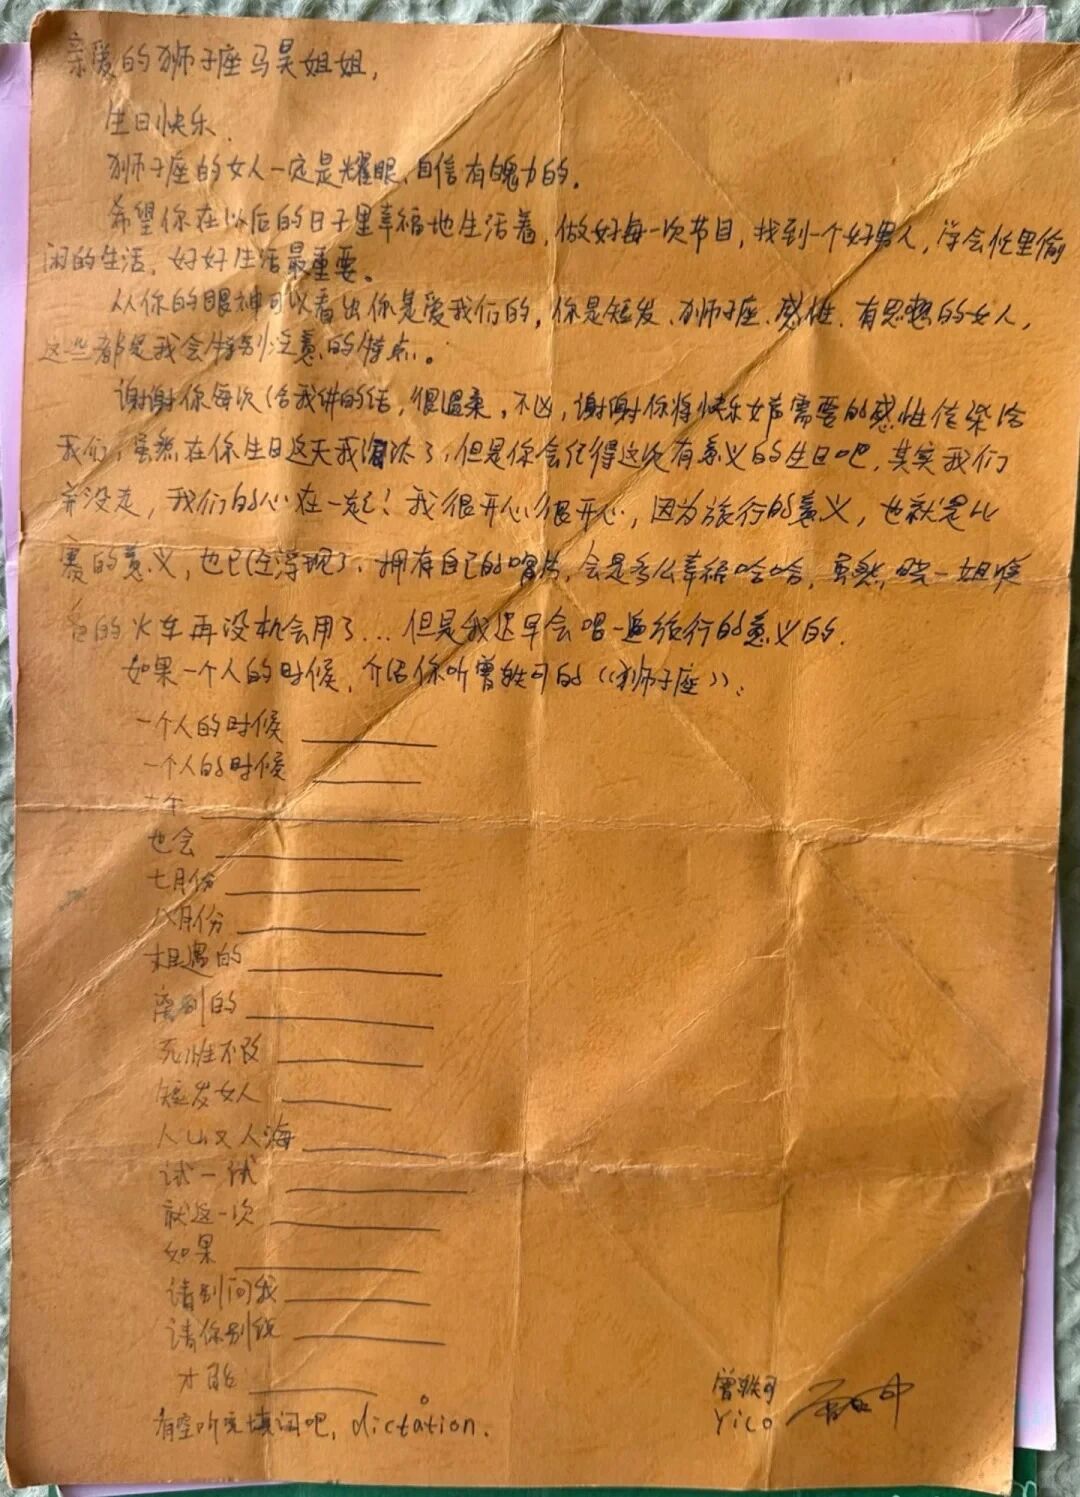 亲爱的狮子座马昊姐姐，
生日快乐.
狮子座的女人一定是耀眼、自信有魄力的。
希望你在以后的日子里幸福地生活着，做好每一次节目，找到一个好男人，学会忙里偷
闲的生活，好好生活最重要。
从你的眼神可以看出你是爱我们的，你是短发、狮子座、感性、有思想的女人，
这些都是我会特别注意的特点。
谢谢你每次给我讲的话，很温柔，不凶，谢谢你将快乐女声需要的感性传染给
我们，虽然在你生日这天我淘汰了，但是你会记得这次有意义的生日吧，其实我们
并没走，我们的心在一起！我很开心很开心，因为旅行的意义，也就是比
赛的意义，也已经浮现了，拥有自己的唱片，会是多么幸福哈哈，虽然 一姐
的火车再没机会用了...但是我迟早会唱一遍旅行的意义的.
如果一个人的时候，介绍你听曾轶可的《狮子座》：
一个人的时候
一个人的时候
也会
七月份
八月份
相遇的
离别的
死性不改
短发女人
人山又人海
试一试
就这一次
如果
请别问我
请你别说
才能
有空听完填词吧，dictation.
曾轶可
Yico